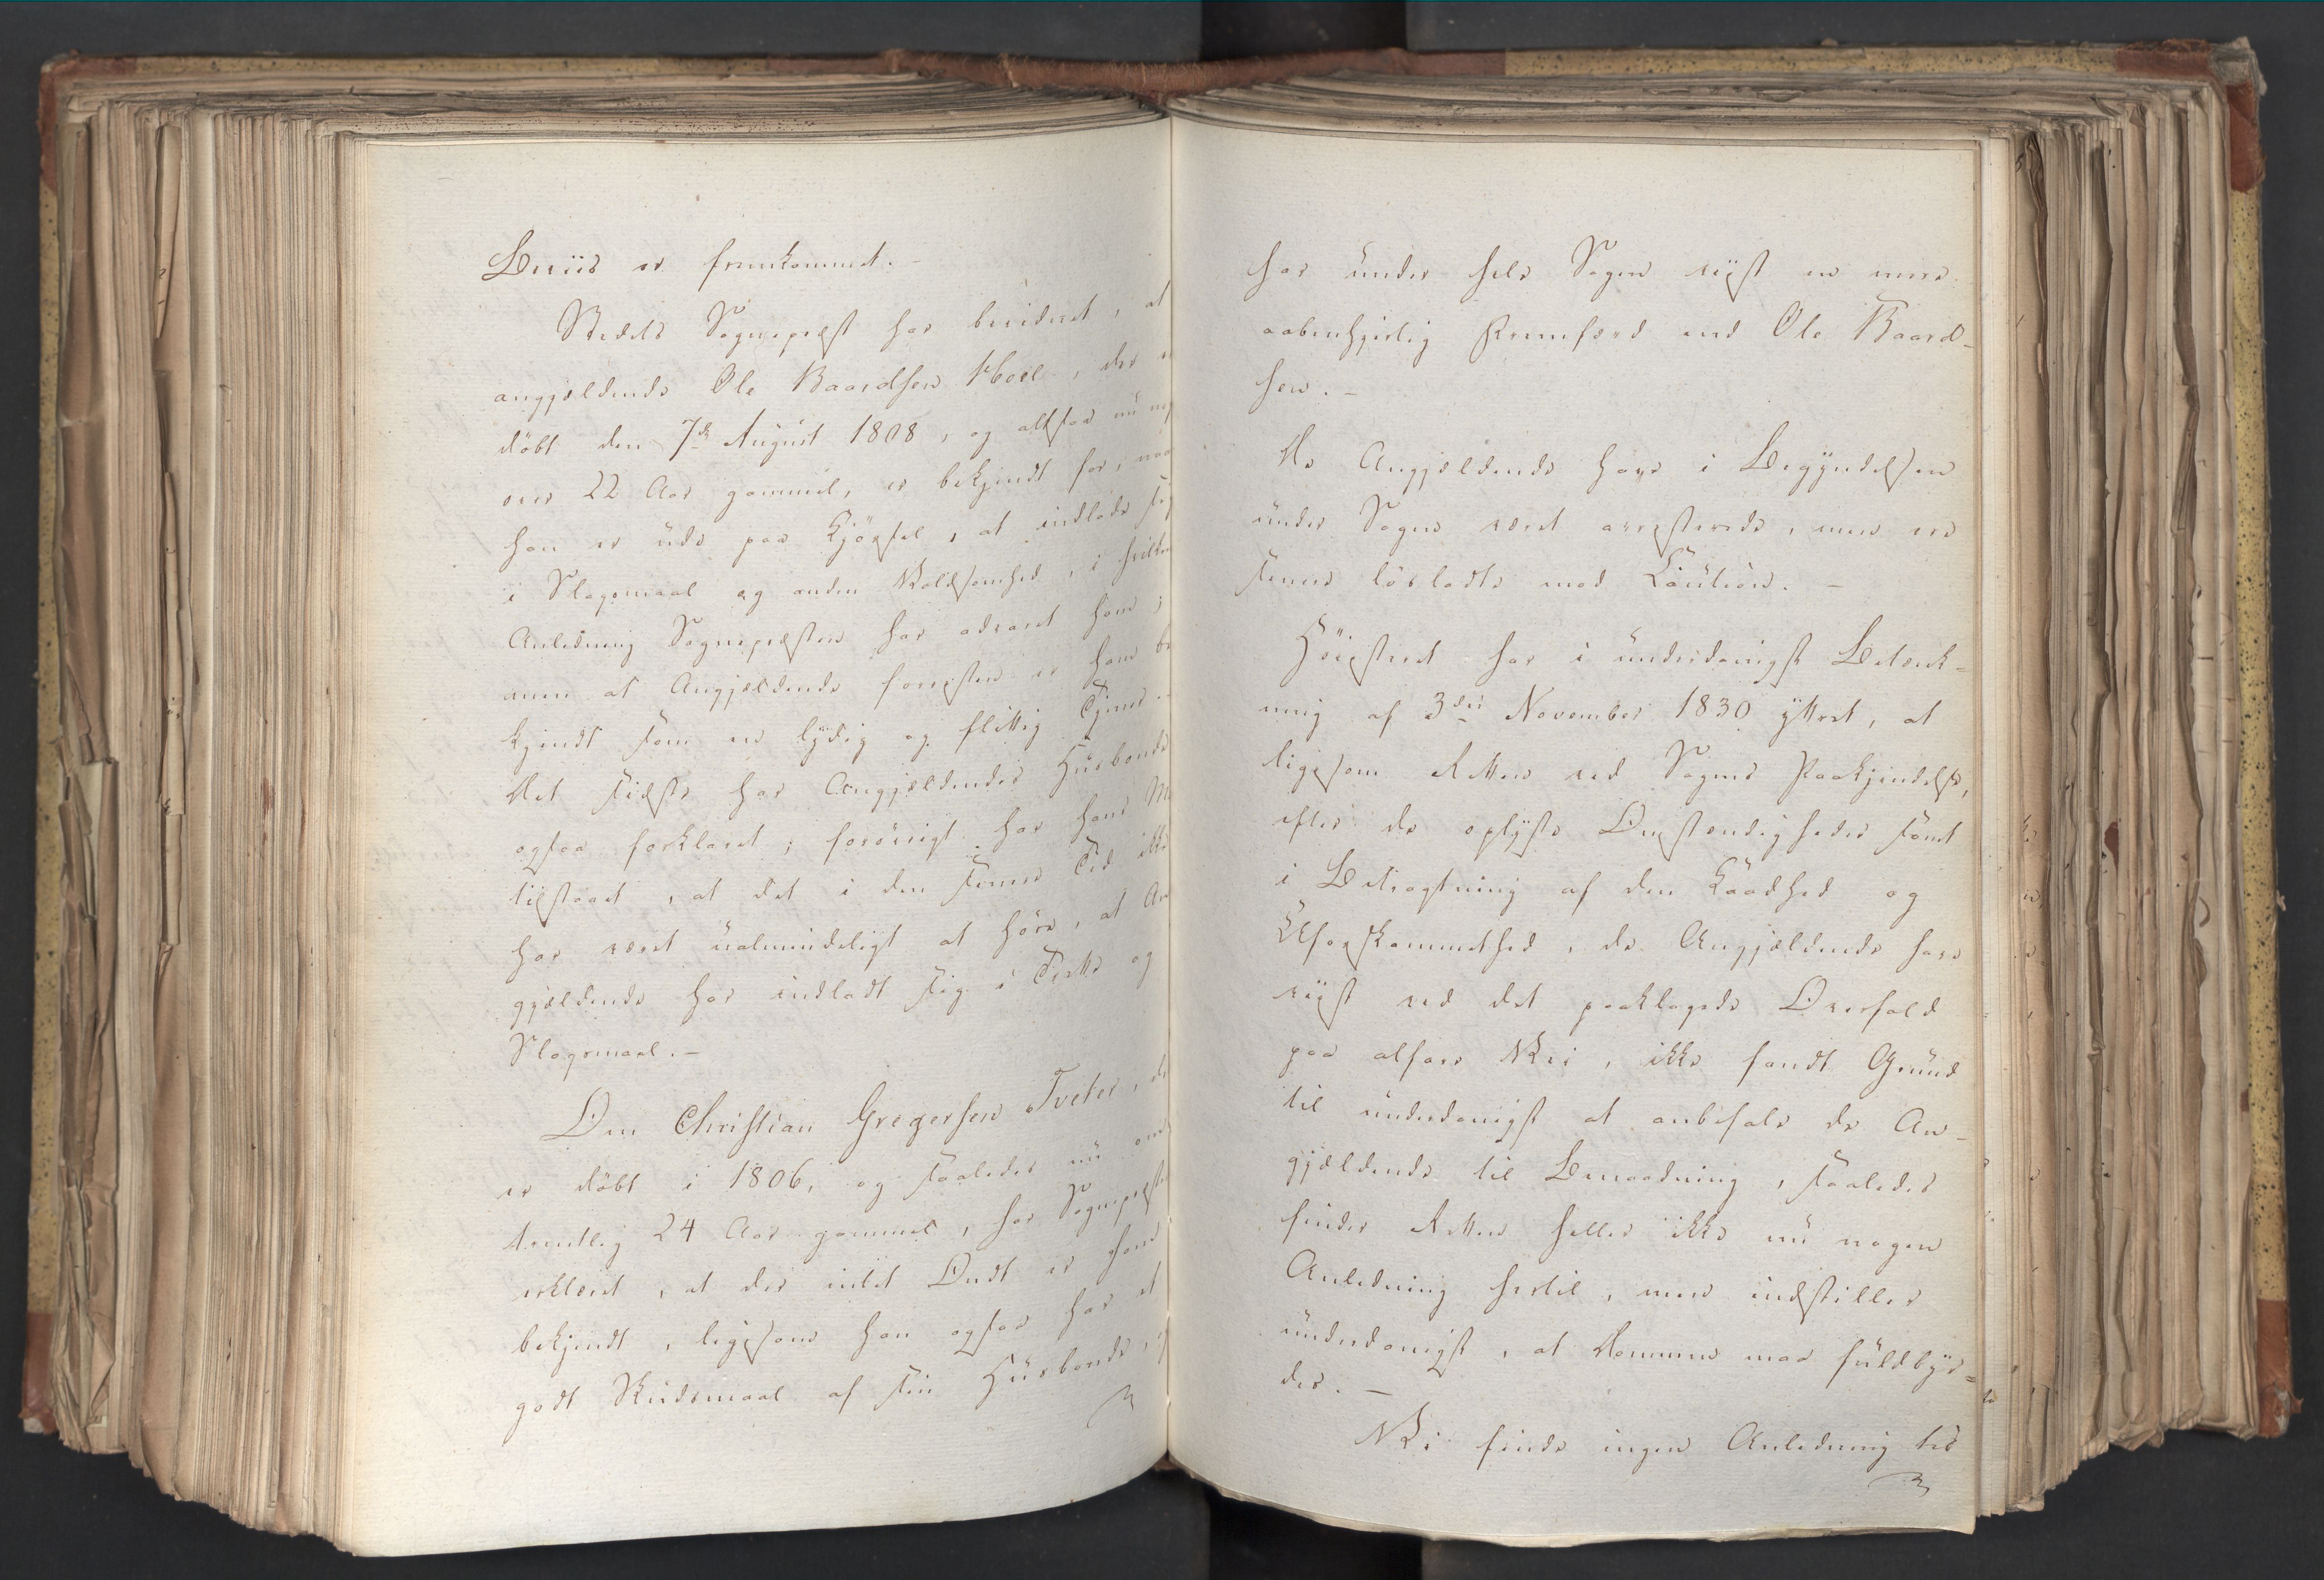 Beviis er fremkommet. –
Stedets Sognepræst har bevidnet, at
angjældende Ole Baardsen Moel, der
döbt den 7de August 1808, og altsaa nu
over 22 Aar gammel, er bekjendt for, naar
han er ude paa Kjörsel, at indlade sig
i Slagsmaal og anden Voldsomhed, i hvilken
Anledning Sognepræsten har advaret ham;
men at Angjældende forresten er ham be
kjendt som en lydig og flittig Tjener. –
Det sidste har Angjældendes Huusbonde
ogsaa forklaret; forövrigt har hans
tilstaaet, at det i den senere Tid ikke
har været ualmindeligt at höre, at An
gjældende har indladt sig i Trette og
Slagsmaal. –
Om Christian Gregersen Tveter, der
er döbt i 1806, og saaledes nu om
trentlig 24 Aar gammel, har Sognepræsten
erklæret, at der intet Ondt er ham
bekjendt, ligesom han ogsaa har et
godt Skudsmaal af sin Huusbonde,
har under hele Sagen viist en mere
aabenhjertig Fremfærd end Ole Baard-
sen. –
De Angjældende have i Begyndelsen
under Sagen været arresterede, men ere
senere lösladte mod Caution. –
Höiesteret har i underdanigst Betænk=
ning af 3die November 1830 yttret, at
ligesom Retten ved Sagens Paakjendelse,
efter de oplyste Omstændigheder samt
i Betragtning af den Kaadhed og
Uforskammethed, de Angjældende have
viist ved det paaklagede Overfald
paa alfare Vei, ikke fandt Grund
til underdanigst at anbefale de An-
gjældende til Benaadning, saaledes
finder Retten heller ikke nu nogen
Anledning hertil, men indstiller
underdanigst, at Dommen maa fuldbyr=
des. –
Vi finde ingen Anledning til